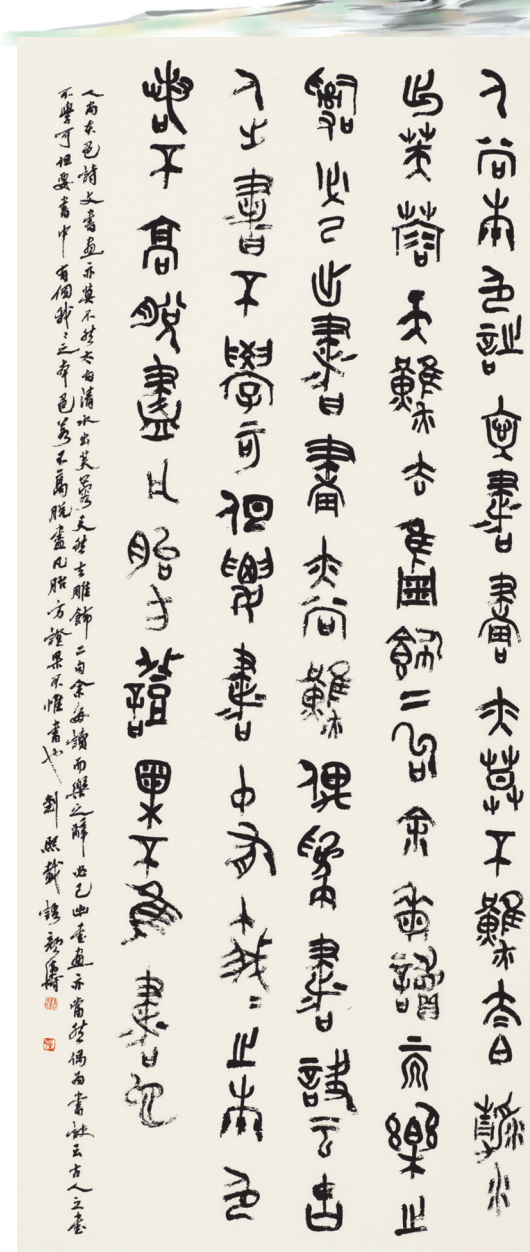 人尚本色詩文書畫亦莫不然太白清水
出芙蓉天然去雕飾二句余每讀而樂之
辭必己出書畫亦尚然偶為書訣云古
人之書不學可但要書中有个我々之本色
若不高脫盡凡胎方證果不惟書也
人尚本色詩文書畫亦莫不然太白清水出芙蓉天然去雕飾二句余每讀而樂之辭必己出書畫亦當然偶為書訣云古人之書
不學可但要書中有個我々之本色若不高脫盡凡胎方證果不惟書也 劉熙載語 顏濤